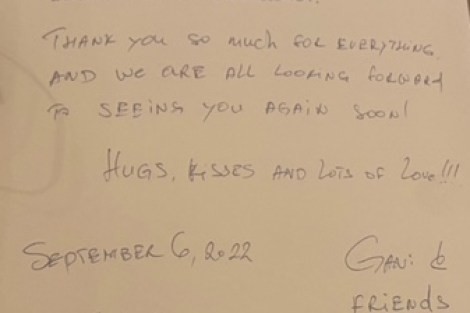 THANK you so much FOR EVERYTHING
AND WE ARE ALL LOOKING FORWARD
TO SEEING YOU AGAIN SOON!
HUGS, KISSES AND LOTS OF LOVE!!!
SEPTEMBER 6, 2022
GANI &
FRIENDS